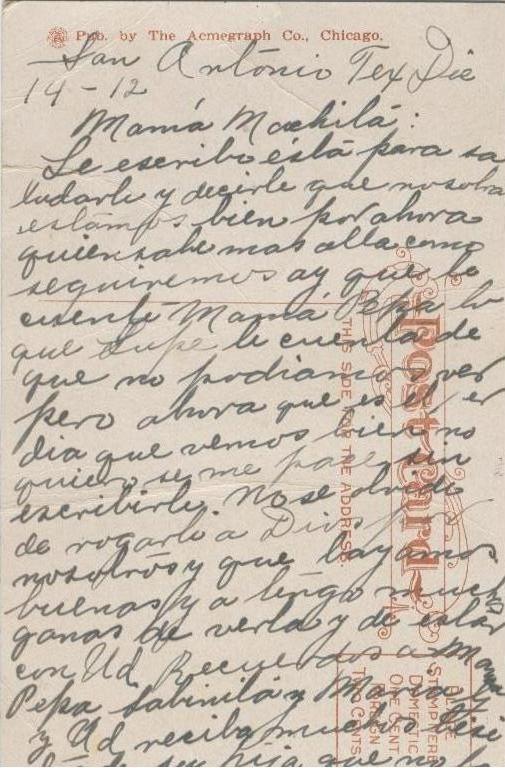 Pub. by The Acmegraph Co., Chicago.
San Antonio Tex Die
14-12
Mamá Machilá:
Le escribo ésta para sa
ludarle y decirle que nosotra
estamos bien por ahora
quien sabe mas alla como
seguiremos ay que le
cuente Mamá Pepa lo
que Lupe le cuenta de
que no podiamos ver
pero ahora que es el 1 er
dia que vemos bien no
quiero se me pase sin
escribirle. No se olvide
de rogarle a Dios por
nosotros y que vayamos
buenas ya tengo mucha
ganas de verla y de estar
con Ud Recuerdos a Mama
Pepa Sabinita y Maria y
y Ud. reciba muchos
de su hija que no la
Post Card
THIS SIDE FOR THE ADDRESS.
PLACE
STAMP HERE
DOMESTIC
ONE CENT
FOREIGN
TWO CENTS